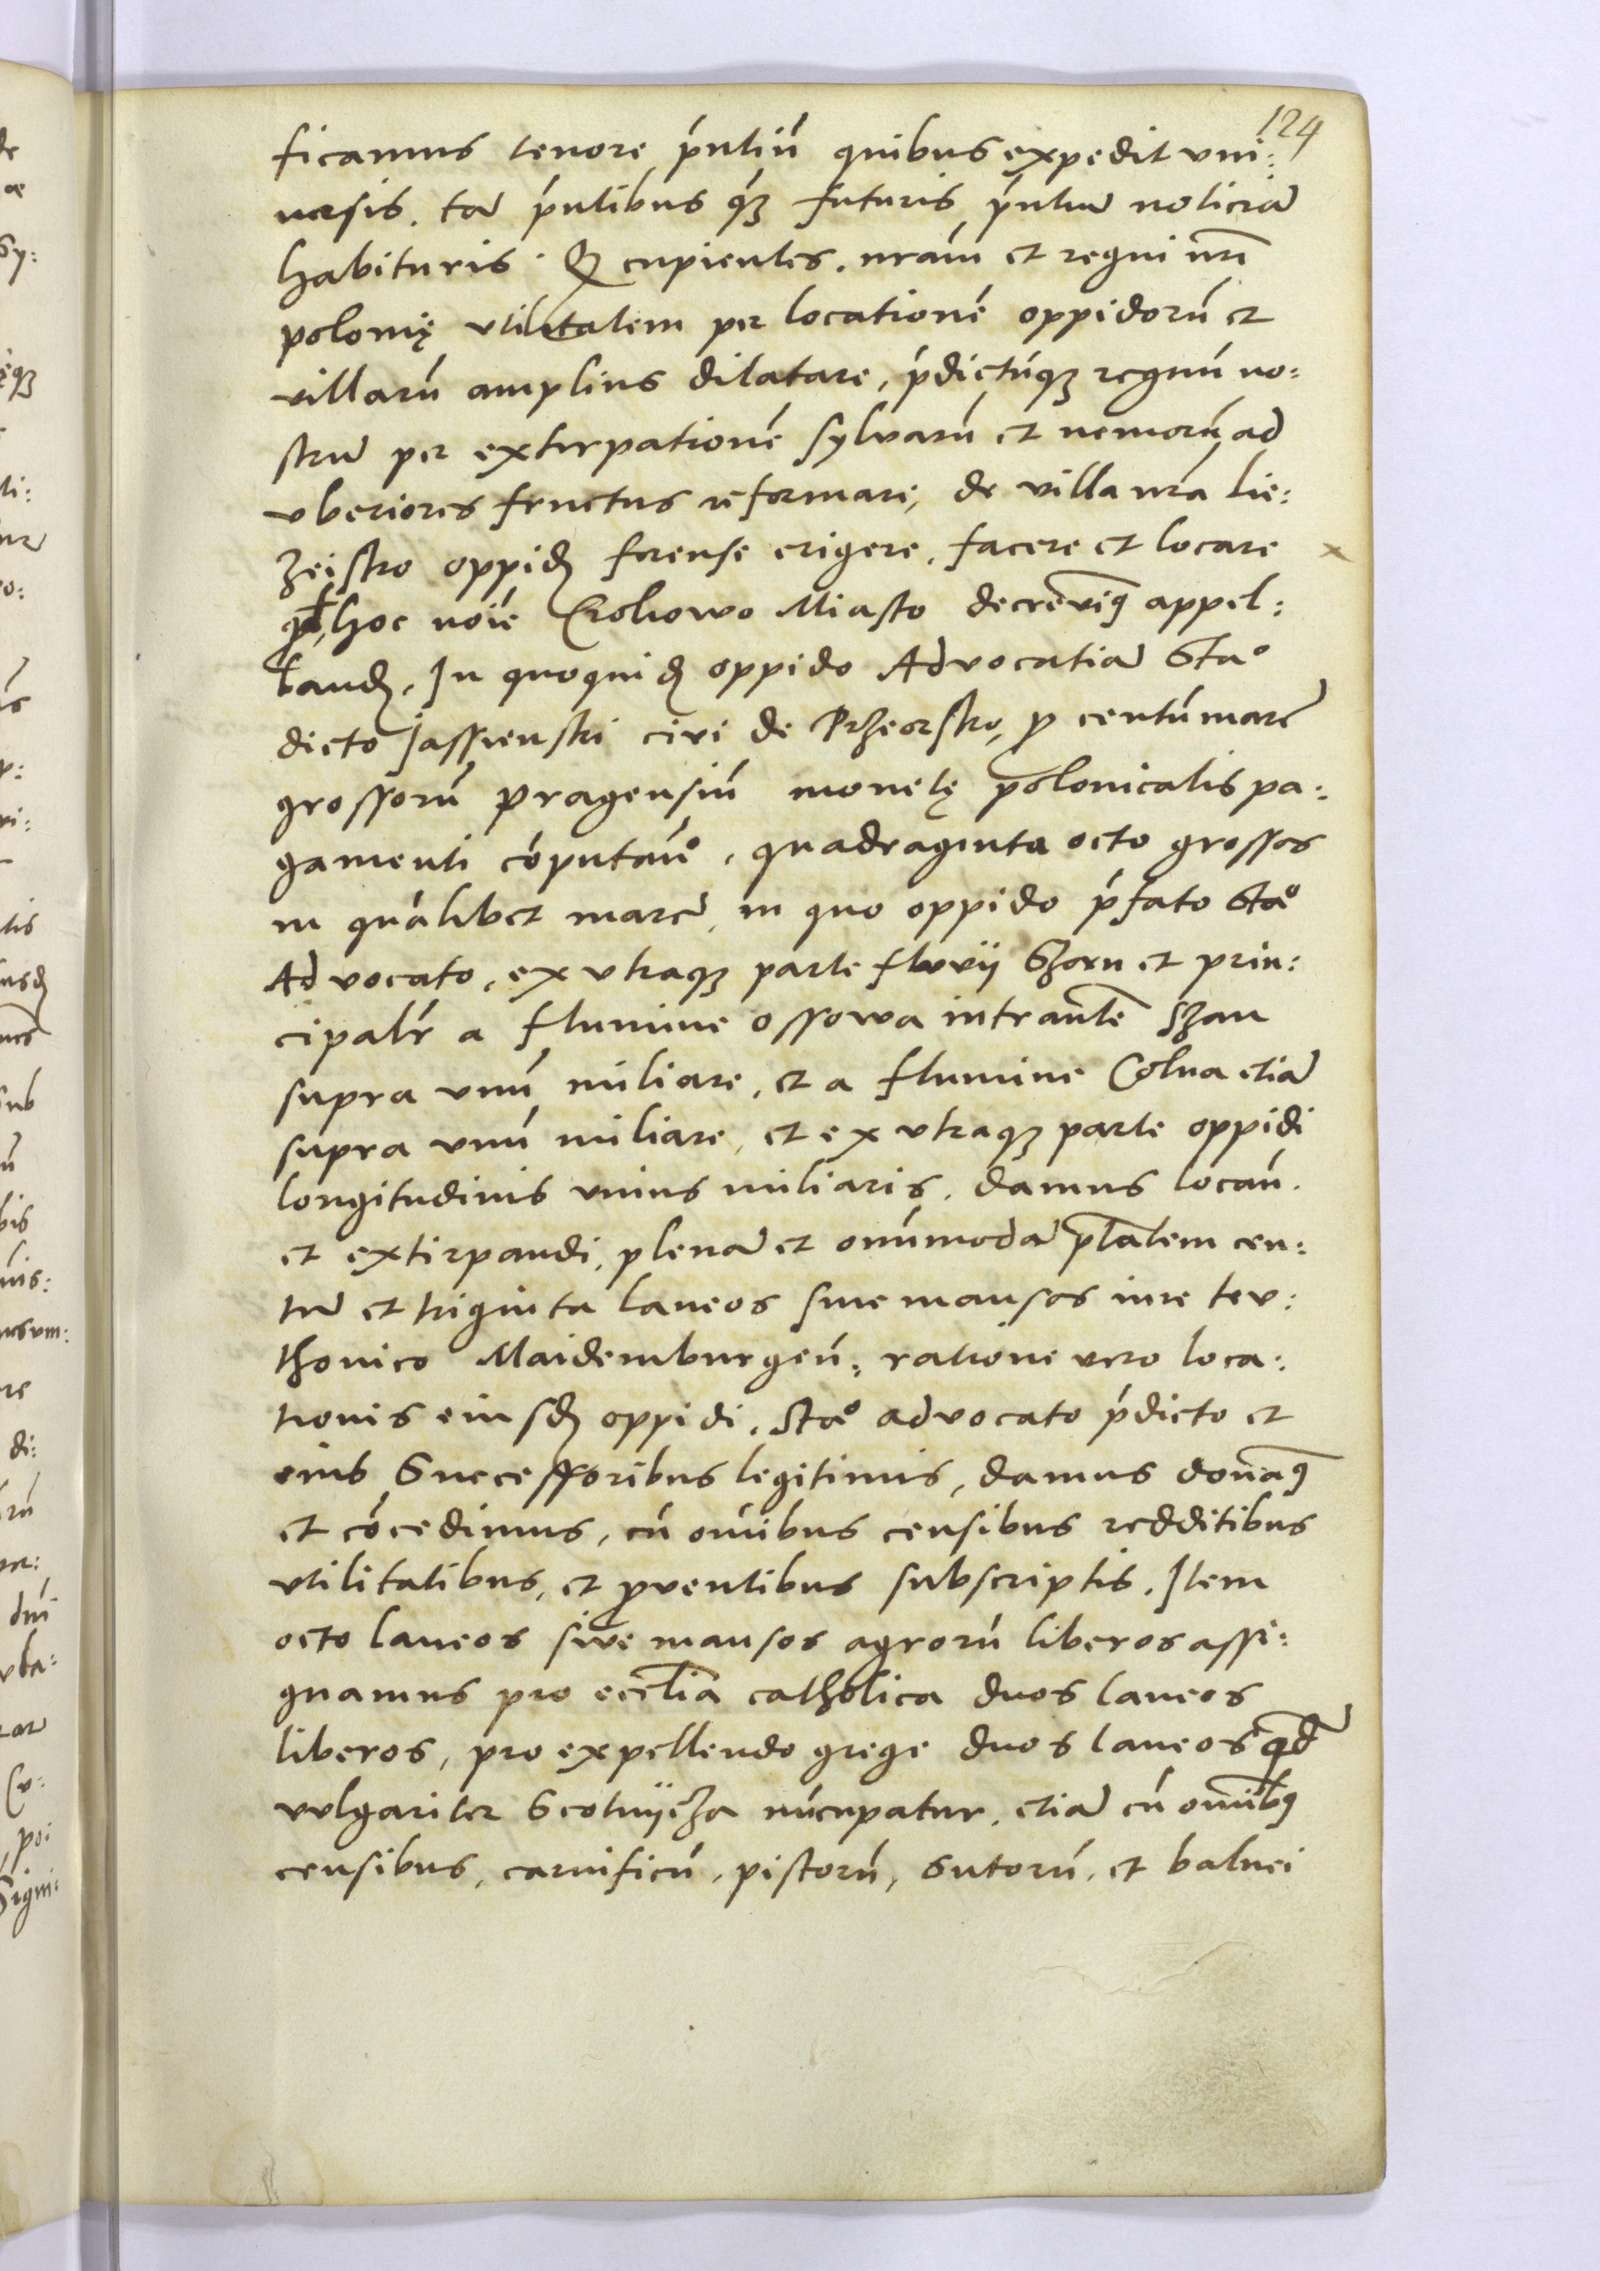 124
ficamus tenore p̃ntiũ quibus expedit vni:
uersis. tã p̃ntibus q̃ꝫ futuris p̃ntiũ noticiã
habituris. Qꝫ cupientes. nr̃am et regni nr̃i
polonię vtilitatem per locationẽ oppidorũ et
villarũ amplius dilatare, p̃dictũqꝫ regnũ no:
strũ per extirpationẽ syluarũ et nemorũ, ad
vberiores fructus reformare, de villa nr̃a lie:
zeisko oppidꝫ forense erigere, facere et locare
hoc noĩe Crolowo Miasto decreuimꝯ appel:
landꝫ. In quoquidꝫ oppido Advocatiã Staº
dicto Jassienski civi de Przeorsko, ꝓ centũ marc̃
grossorũ pragensiũ monetę polonicalis pa:
gamenti cõputañº, quadraginta octo grossos
in quãlibet marcã, in quo oppido p̃fato Staº
Advocato, ex vtraqꝫ parte fluvij Szan et prin:
cipalr̃ a flumine ossowa intrantẽ Szan
supra vnũ miliare, et a flumine Colna etiã
supra vnũ miliare, et ex vtraqꝫ parte oppidi
longitudinis vnius miliaris, damus locañ.
et extirpandi, plenã et om̃imodã ptãtem cen:
tũ et triginta laneos siue mansos iure teu:
thonico Maidemburgeñ: ratione vero loca:
tionis eiusdꝫ oppidi. Staº advocato p̃dicto et
eius Successoribus legitimis, damus donamꝯ
et cõcedimus, cũ om̃ibus censibus redditibus
vtilitatibus, et ꝓventibus subscriptis. Item
octo laneos siue mansos agrorũ liberos assi:
gnamus pro eccl̃ia catholica duos laneos
liberos, pro expellendo grege duos laneos qđ
vulgariter Scotnijcza nũcupatur, etiã cũ om̃ibꝯ
censibus, carnificũ, pistorũ, sutorũ, et balnei